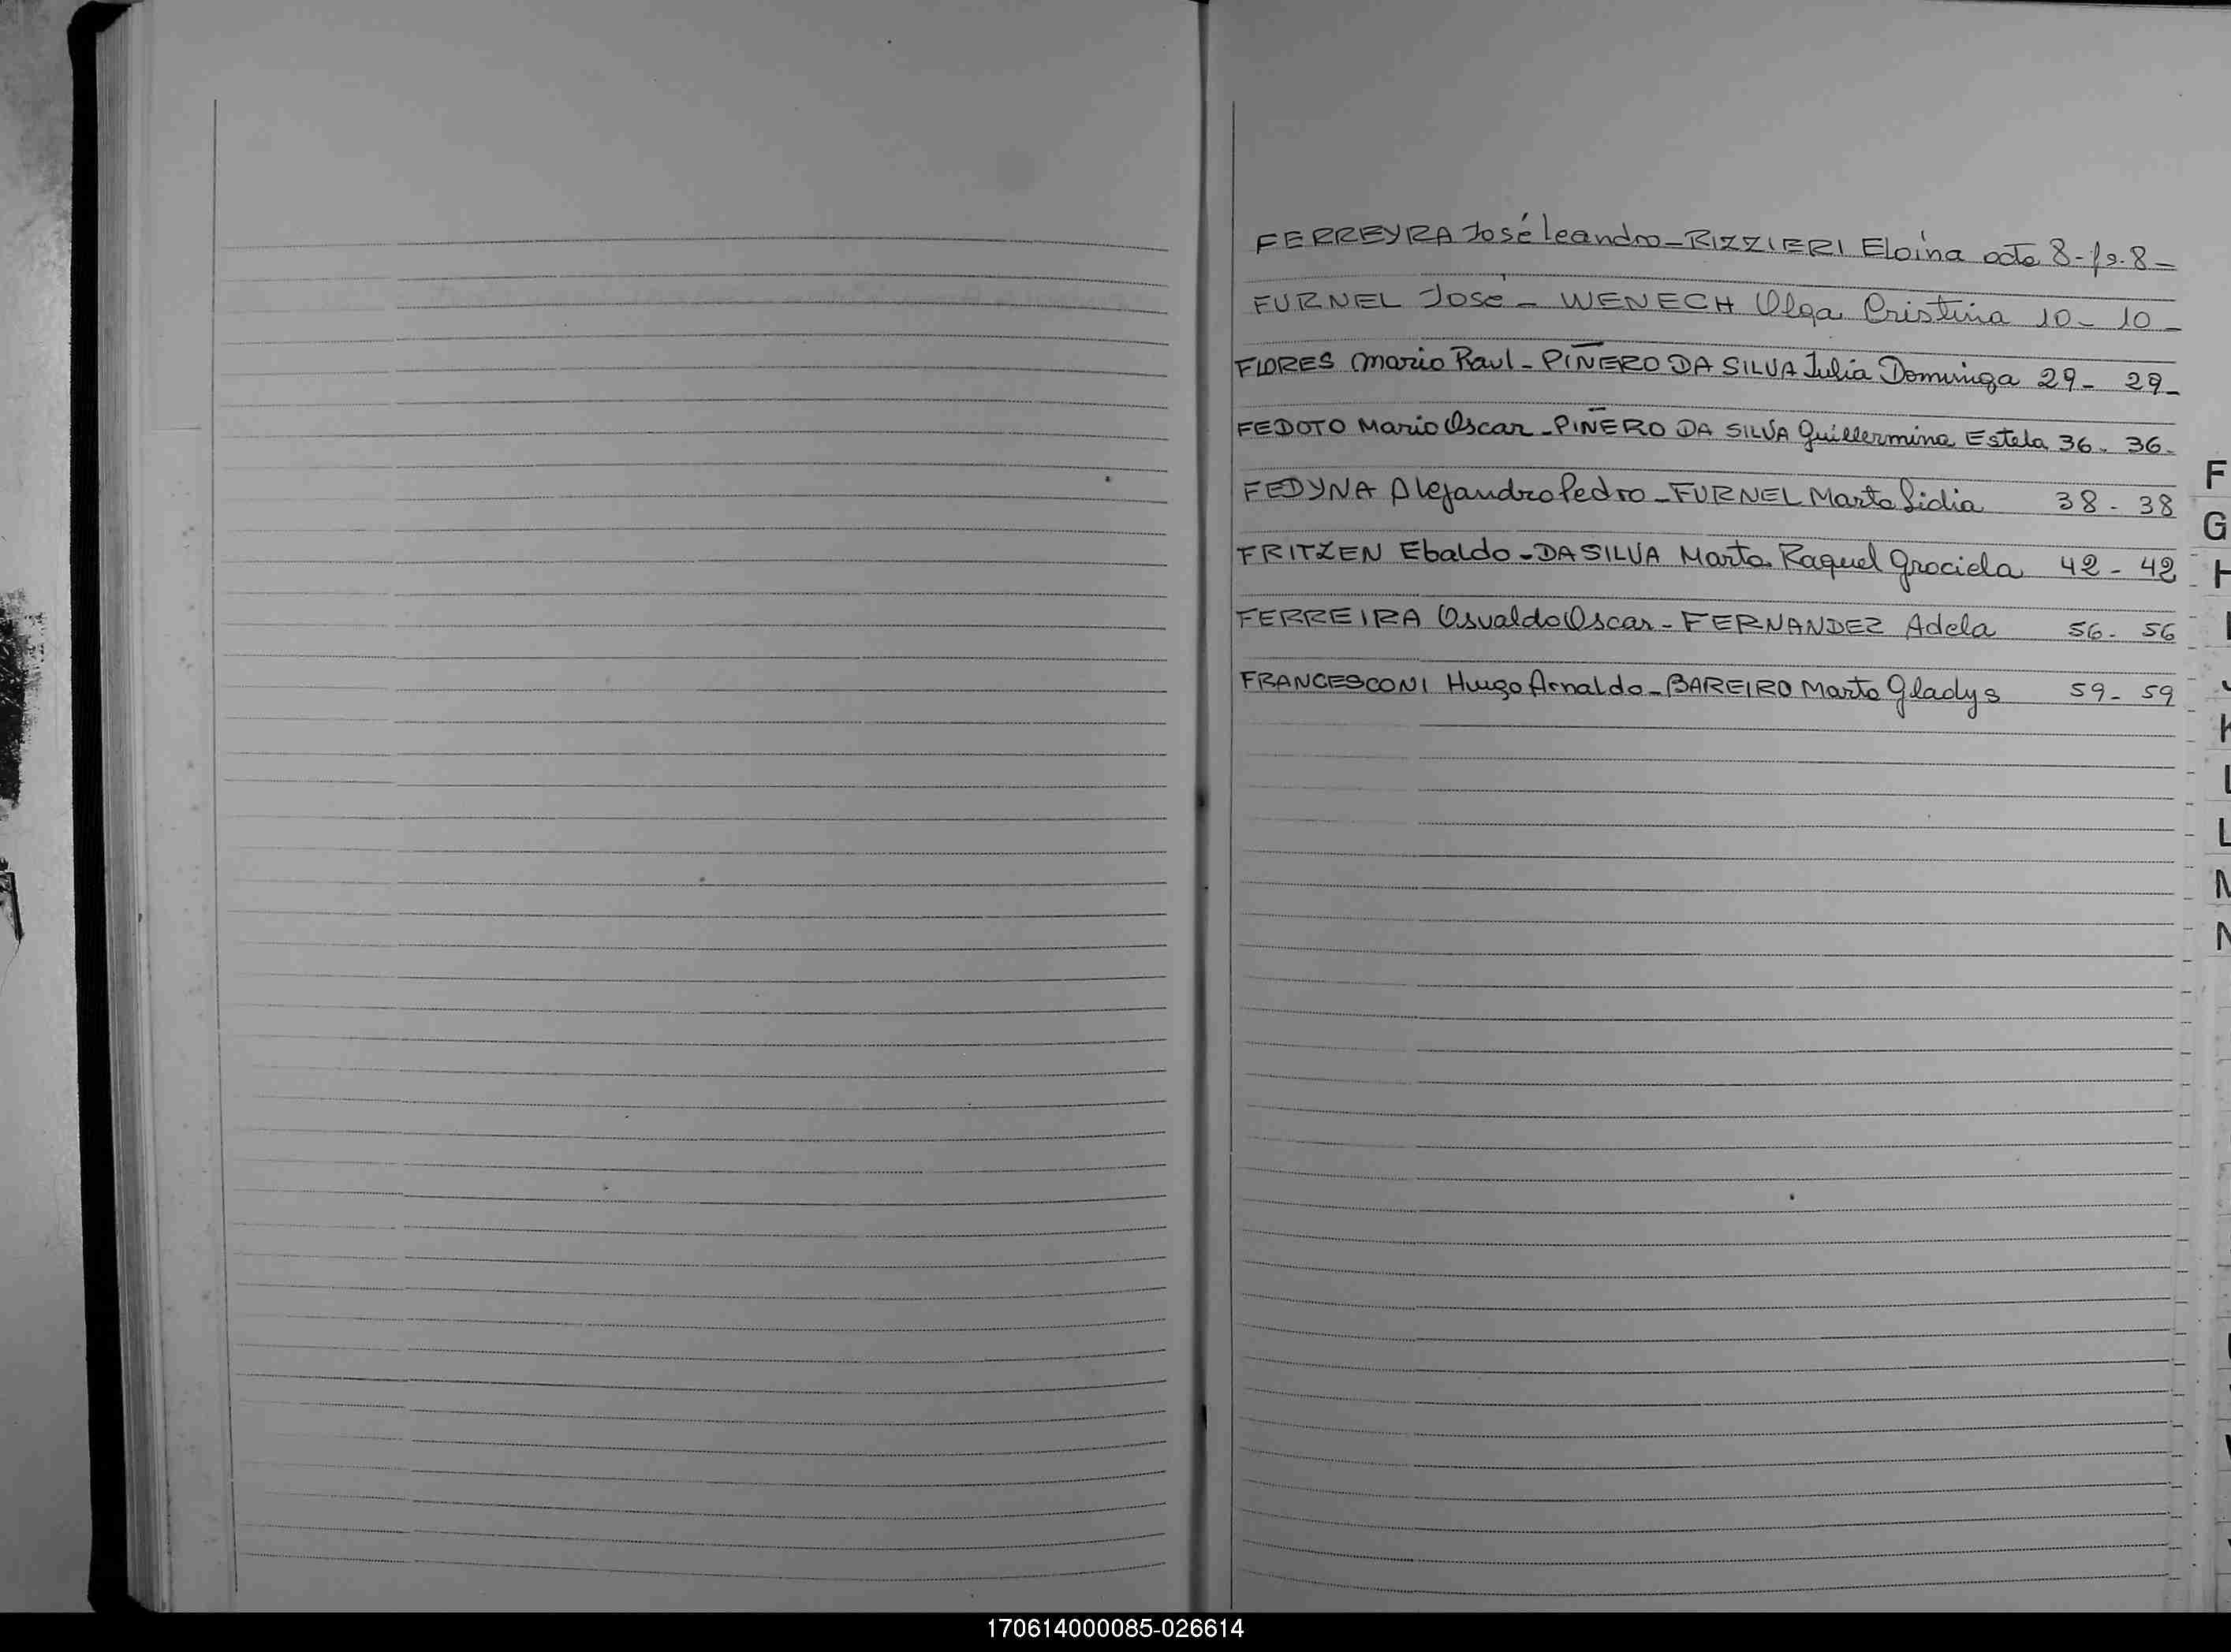 FERREYRA José Leandro - RIZZIERI Eloina acta 8 - fs. 8 -
FURNEL José - WENECH Olga Cristina 10 - 10 -
FLORES Mario Raul - PIÑERO DA SILVA Julia Dominga 29 - 29 -
FEDOTO Mario Oscar - PIÑERO DA SILVA Guillermina Estela 36 - 36 -
FEDYNA Alejandro Pedro - FURNEL Marta Lidia 38 - 38
FRITZEN Ebaldo - DA SILVA Marta Raquel Graciela 42 - 42
FERREIRA Osvaldo Oscar - FERNANDEZ Adela 56 - 56
FRANCESCONI Hugo Arnaldo - BAREIRO Marta Gladys 59 - 59
F
G
H
I
J
K
L
L
M
N
170614000085-026614